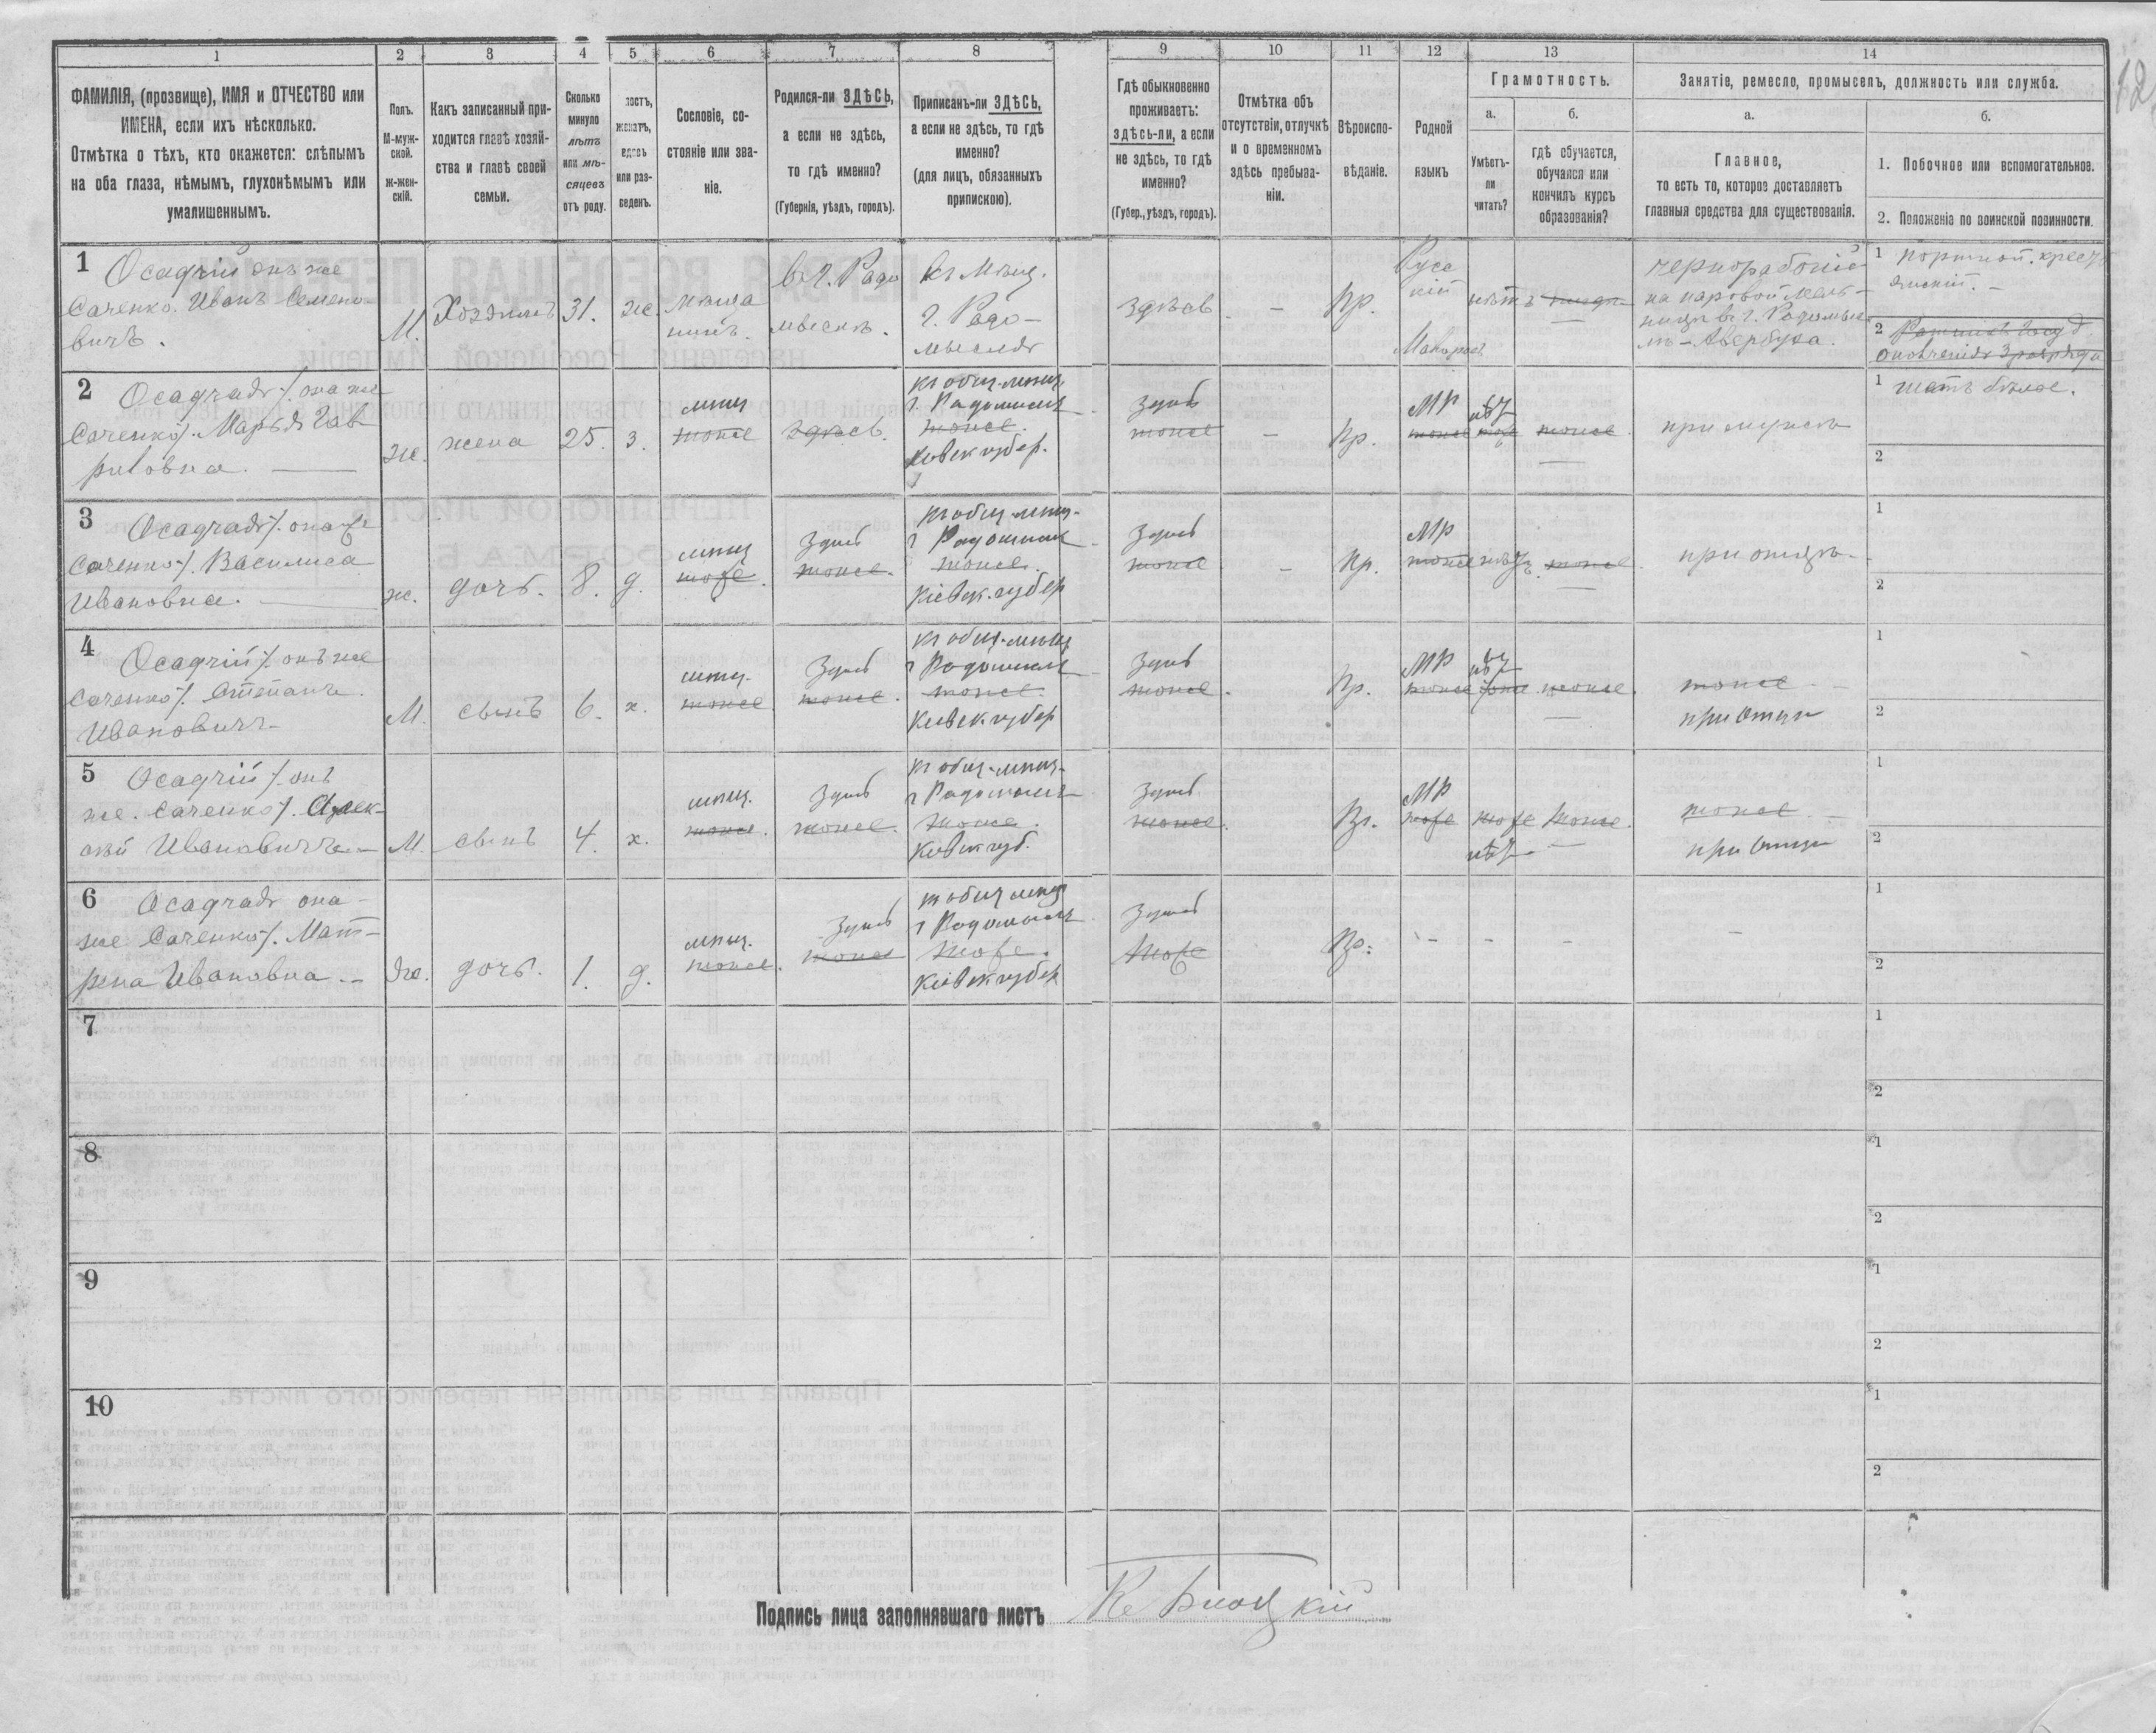 1
2
3
4
5
6
7
8
9
10
11
12
13
14
ФАМИЛІЯ, (прозвище), ИМЯ и ОТЧЕСТВО или
ИМЕНА, если ихъ нѣсколько.
Отмѣтка о тѣхъ, кто окажется: слѣпымъ
на оба глаза, нѣмымъ, глухонѣмымъ или
умалишеннымъ.
Полъ.
М-муж-
ской.
Ж-жен-
скій.
Какъ записанный при-
ходится главѣ хозяй-
ства и главѣ своей
семьи.
Сколько
минуло
лѣтъ
или мѣ-
сяцевъ
отъ роду.
женатъ,
вдовъ
или раз-
веденъ.
Сословіе, со-
стояніе или зва-
ніе.
Родился-ли ЗДѢСЬ,
а если не здѣсь,
то гдѣ именно?
(Губернія, уѣздъ, городъ).
Приписанъ-ли ЗДѢСЬ,
а если не здѣсь, то гдѣ
именно?
(для лицъ, обязанныхъ
припискою).
Гдѣ обыкновенно
проживаетъ:
здѣсь-ли, а если
не здѣсь, то гдѣ
именно?
(Губер., уѣздъ, городъ).
Отмѣтка объ
отсутствіи, отлучкѣ
и о временномъ
здѣсь пребыва-
ніи.
Вѣроиспо-
вѣданіе.
Родной
языкъ
Грамотность.
а.
Умѣетъ-
ли
читать?
б.
гдѣ обучается,
обучался или
кончилъ курсъ
образованія?
Занятіе, ремесло, промыселъ, должность или служба.
а.
Главное,
то есть то, которое доставляетъ
главныя средства для существованія.
б.
1. Побочное или вспомогательное.
2. Положеніе по воинской повинности.
1 Осадчій онъ же
Саченко. Иванъ Семено-
вичъ.
М.
Хозяинъ
31.
же.
мѣща
нинъ.
въ г. Радо
мыслѣ.
къ Мѣщ.
г. Радо-
мысля
здѣсь
-
Пр.
Русс
кій
Малорос
нѣтъ
чернорабочій
на паровой мель-
ницѣ въ г. Радомыс
лѣ - Авербуха.
1 портной.
2
2 Осадчая/. она же
Саченко/. Марья Гав
риловна.
ж.
жена
25.
з.
мѣщ
тоже
здѣсь.
къ общ. мѣщ.
г. Радомысля
тоже.
Кіевск губер.
Здѣсь
тоже
-
Пр.
МР
тоже
нѣт
тоже
тоже.
при мужѣ
1 шьетъ бѣлье.
2
3 Осадчая/. она же
Саченко/. Василиса
Ивановна.
ж.
дочь.
8.
д.
мѣщ
тоже.
Здѣсь
тоже.
къ общ. мѣщ.
г Радомысля
тоже.
Кіевск. губер
Здѣсь
тоже
-
Пр.
МР
тоже
нѣт
тоже.
при отцѣ
1
2
4 Осадчій/. онъ же
Саченко/. Степанъ.
Ивановичъ
М.
сынъ
6.
х.
мѣщ.
тоже
Здѣсь
тоже.
къ общ. мѣщ
г Радомысля
тоже.
Кіевск. губер
Здѣсь
тоже.
Пр.
МР
тоже
нѣт
тоже
тоже.
тоже
при отцѣ
1
2
5 Осадчій/. онъ
же. Саченко/. Алек-
сѣй Ивановичъ
М.
сынъ
4.
х.
мѣщ.
тоже.
Здѣсь
тоже.
къ общ. мѣщ.
г Радомысля
тоже.
Кіевск губ.
Здѣсь
тоже.
Пр.
МР
тоже
тоже
нѣт
тоже.
тоже
при отцѣ
1
2
6 Осадчая она
же Саченко/. Мат-
рена Ивановна
Ж.
дочь.
1.
д.
мѣщ.
тоже.
Здѣсь
тоже
къ общ мѣщ
г Радомысля
тоже.
Кіевск губер
Здѣсь
тоже
Пр.
-
-
-
-
1
2
7
1
2
8
1
2
9
1
2
10
1
2
Подпись лица заполнявшаго листъ